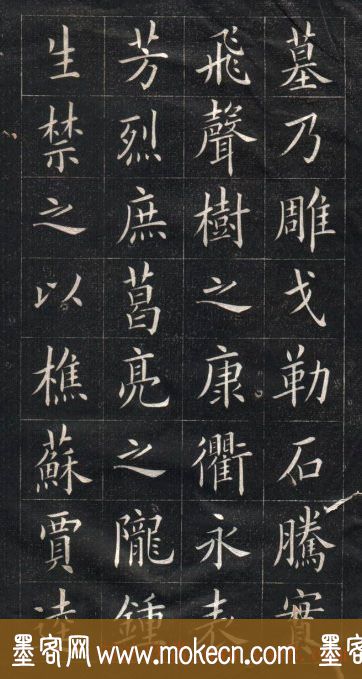 墓乃雕戈勒石騰實
飛聲樹之康衢永表
芳烈庶葛亮之隴鍾
生禁之以樵蘇賈逵
墨客网 www.mokecn.com 墨客